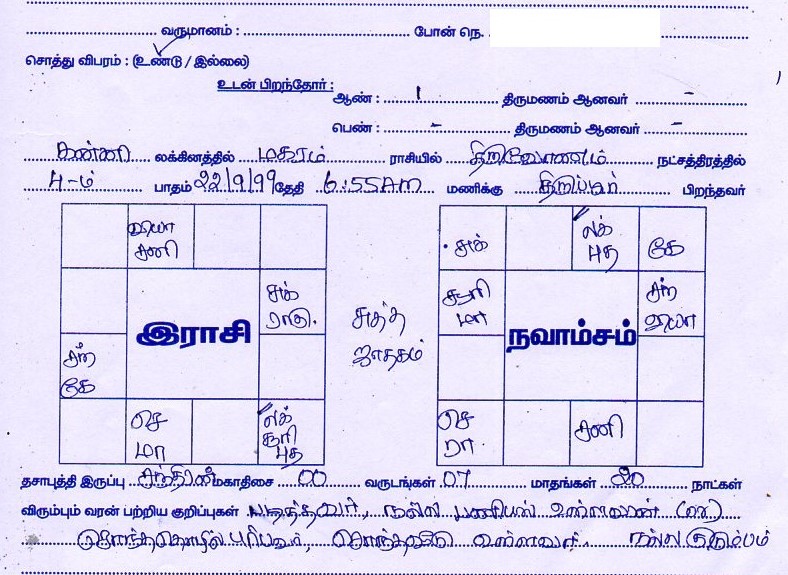 வருமானம் : போன் நெ.
சொத்து விபரம் : (உண்டு / இல்லை)
உடன் பிறந்தோர் :
ஆண் : 1 திருமணம் ஆனவர் -
பெண் : - திருமணம் ஆனவர் -
கன்னி லக்கினத்தில் மகரம் ராசியில் திருவோணம் நட்சத்திரத்தில்
4-ம் பாதம் 22/9/99 தேதி 6:55AM மணிக்கு திருப்பூர் பிறந்தவர்
வியா சனி
சுக் ராகு
சந் கே
செ மா
லக் சூரி புத
இராசி
சுத்த ஜாதகம்
சுக்
லக் புத
கே
சூரி மா
சந் வியா
செ ரா
சனி
நவாம்சம்
தசாபுத்தி இருப்பு சந்திரன் மகாதிசை 00 வருடங்கள் 07 மாதங்கள் 20 நாட்கள்
விரும்பும் வரன் பற்றிய குறிப்புகள் படித்தவர், நல்ல பணியில் உள்ளவர்
சொந்ததொழில் புரிபவர், உள்ளவர் நல்ல குடும்பம்